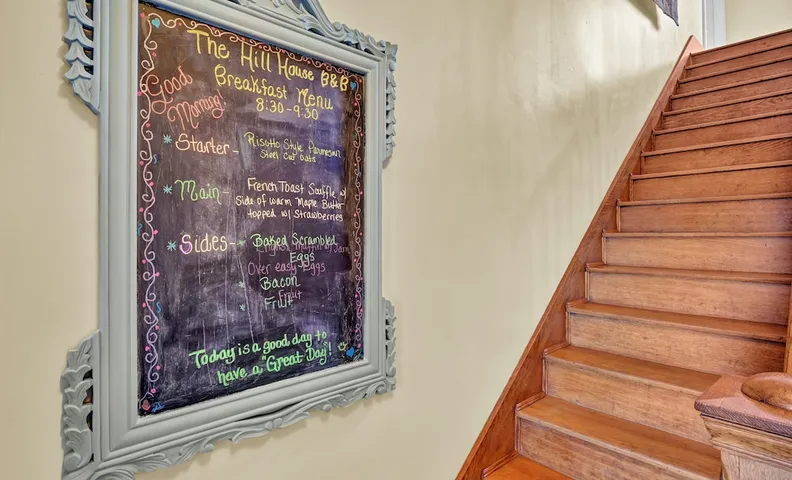 The Hill House B&B
Breakfast Menu
8:30-9:30
Good
Morning!
* Starter - Risotto Style Parmesan
Steel cut oats
* Main - French Toast Souffle w/
Side of warm Maple Butter
topped w/ strawberries
* Sides - * Baked Scrambled
English Muffin w/ Jam
Eggs
Over easy Eggs
Bacon
Fruit
* Fruit
Today is a good day to
have a "Great Day"!